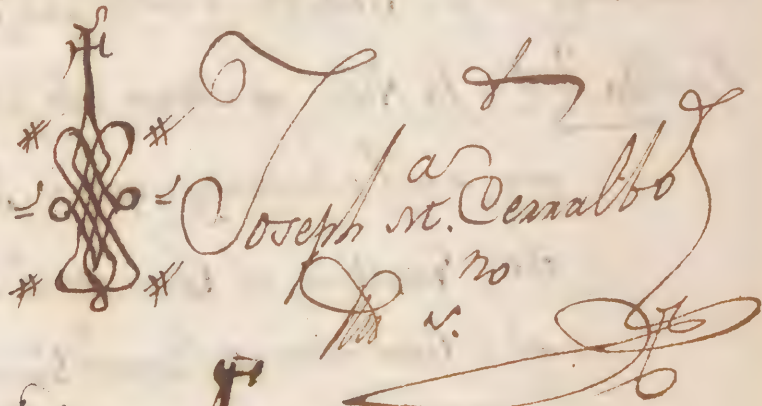 a
Joseph M. Cerralbo
no